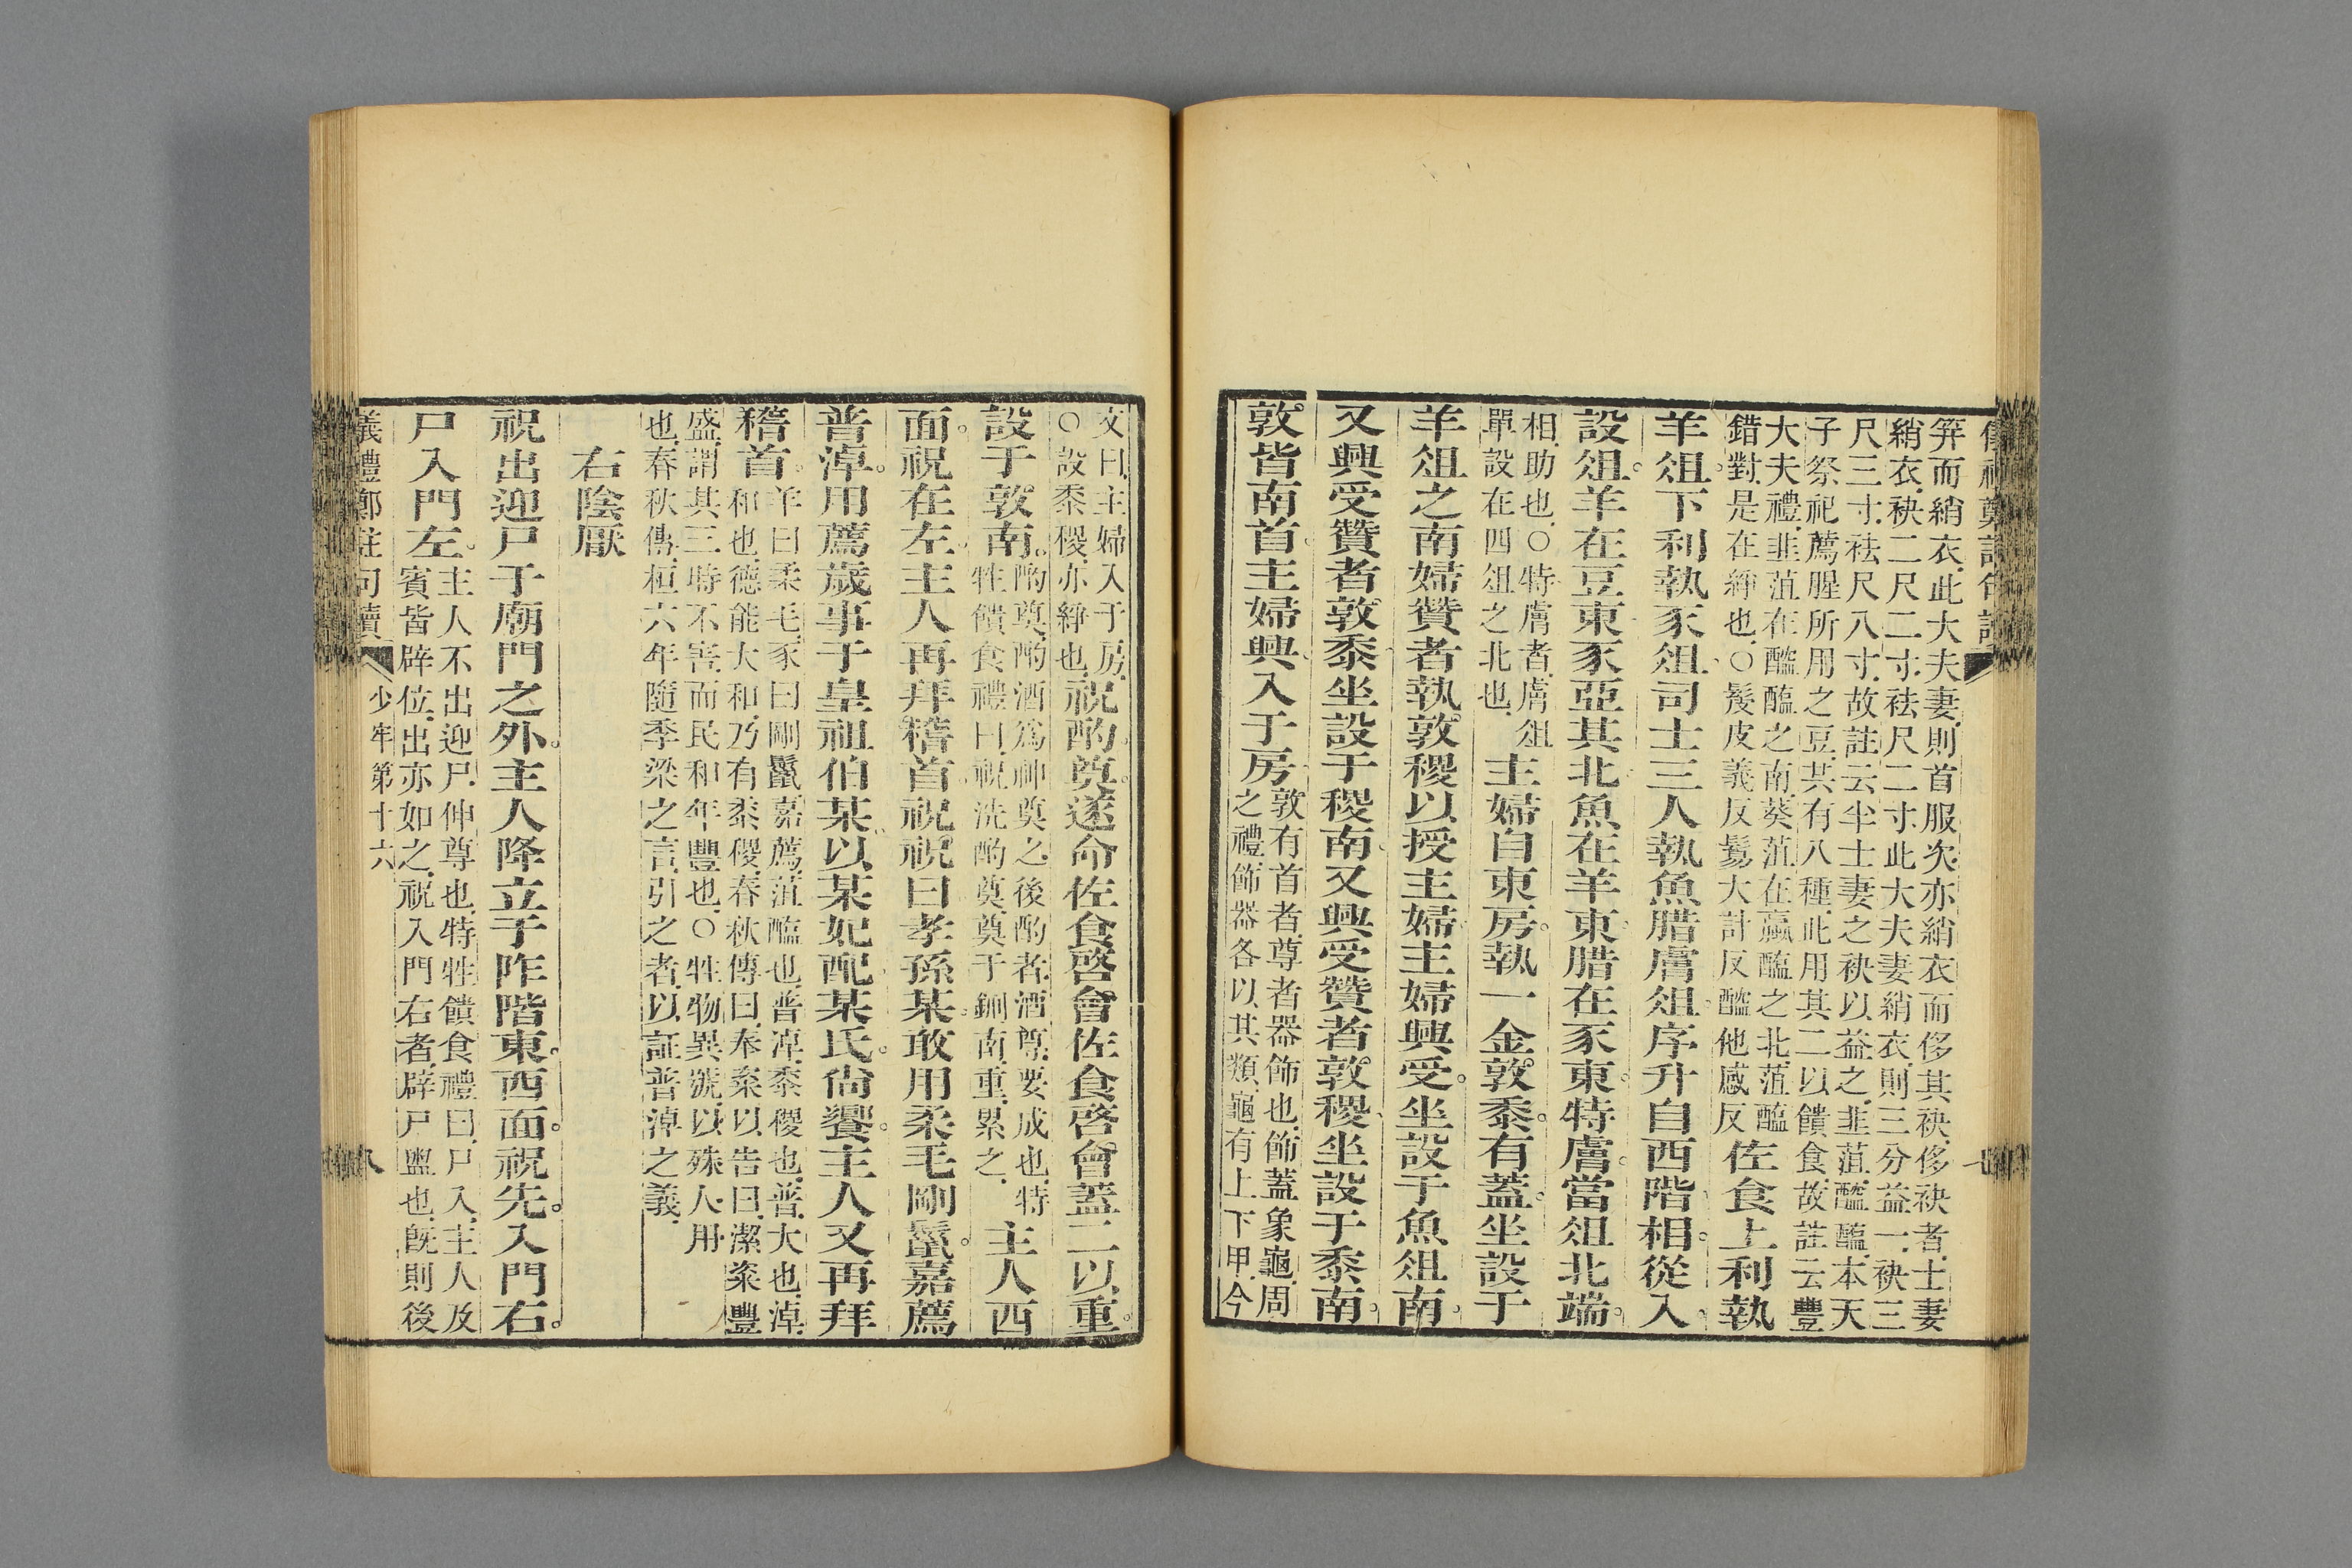 儀禮鄭註句讀
七
笄而綃衣此大夫妻則首服次亦綃衣而侈其袂侈袂者士妻
綃衣袂二尺二寸袪尺二寸此大夫妻綃衣則三分益一袂三
尺三寸袪尺八寸故註云半士妻之袂以益之韭菹醓醢本天
子祭祀薦腥所用之豆其有八種此用其二以饋食故註云豐
大夫禮韭菹在醓醢之南葵菹在蠃醢之北菹醢
錯對是在綪也○髲皮義反鬄大計反醓他感反
佐食上利執
羊俎下利執豕俎司士三人執魚腊膚俎序升自西階相從入
設俎羊在豆東豕亞其北魚在羊東腊在豕東特膚當俎北端
相助也○特膚者膚俎
單設在四俎之北也
主婦自東房執一金敦黍有蓋坐設于
羊俎之南婦贊者執敦稷以授主婦主婦興受坐設于魚俎南
又興受贊者敦黍坐設于稷南又興受贊者敦稷坐設于黍南
敦皆南首主婦興入于房
敦有首者尊者器飾也飾蓋象龜周
之禮飾器各以其類龜有上下甲今
文曰主婦入于房
○設黍稷亦綪也
祝酌奠遂命佐食啓會佐食啓會蓋二以重
設于敦南
酌奠酌酒爲神奠之後酌者酒尊要成也特
牲饋食禮曰祝洗酌奠奠于鉶南重累之
主人西
面祝在左主人再拜稽首祝祝曰孝孫某敢用柔毛剛鬛嘉薦
普淖用薦歲事于皇祖伯某以某妃配某氏尚饗主人又再拜
稽首
羊曰柔毛豕曰剛鬛嘉薦菹醢也普淖黍稷也普大也淖
和也德能大和乃有黍稷春秋傳曰奉粢以告曰潔粢豐
盛謂其三時不害而民和年豐也○牲物異號以殊人用
也春秋傳桓六年隨季梁之言引之者以証普淖之義
右陰厭
祝出迎尸于廟門之外主人降立于阼階東西面祝先入門右
尸入門左
主人不出迎尸伸尊也特牲饋食禮曰尸入主人及
賓皆辟位出亦如之祝入門右者辟尸盥也旣則後
儀禮鄭註句讀
少牢第十六
八